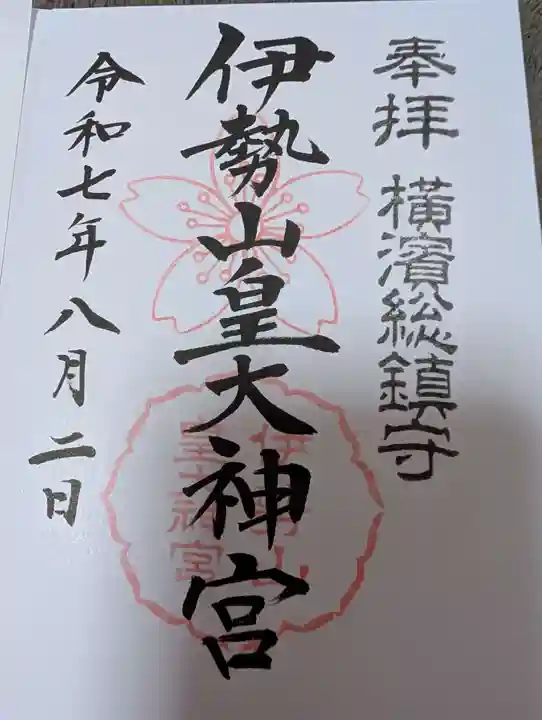 奉拝 橫濱総鎮守
伊勢山皇大神宮
伊勢山
皇大神宮
令和七年八月二日